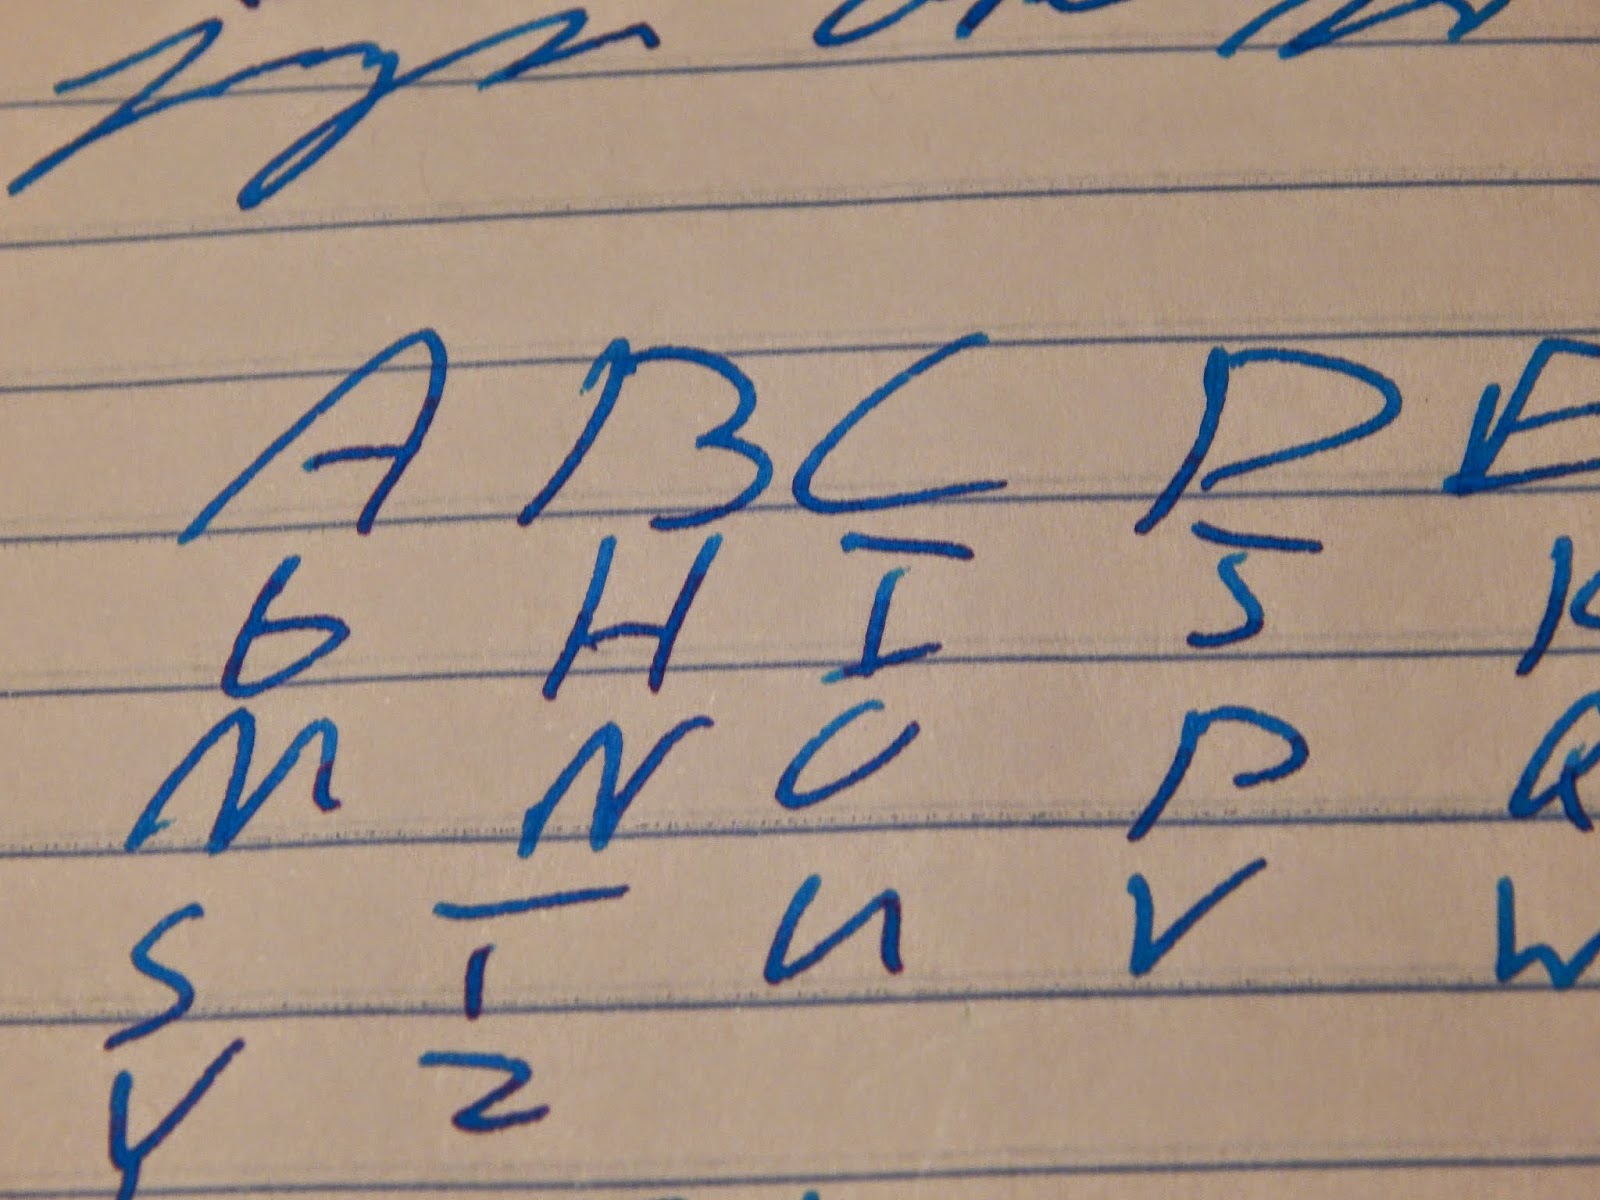 A B C D E
G H I J K
M N O P Q
S T U V W
Y Z